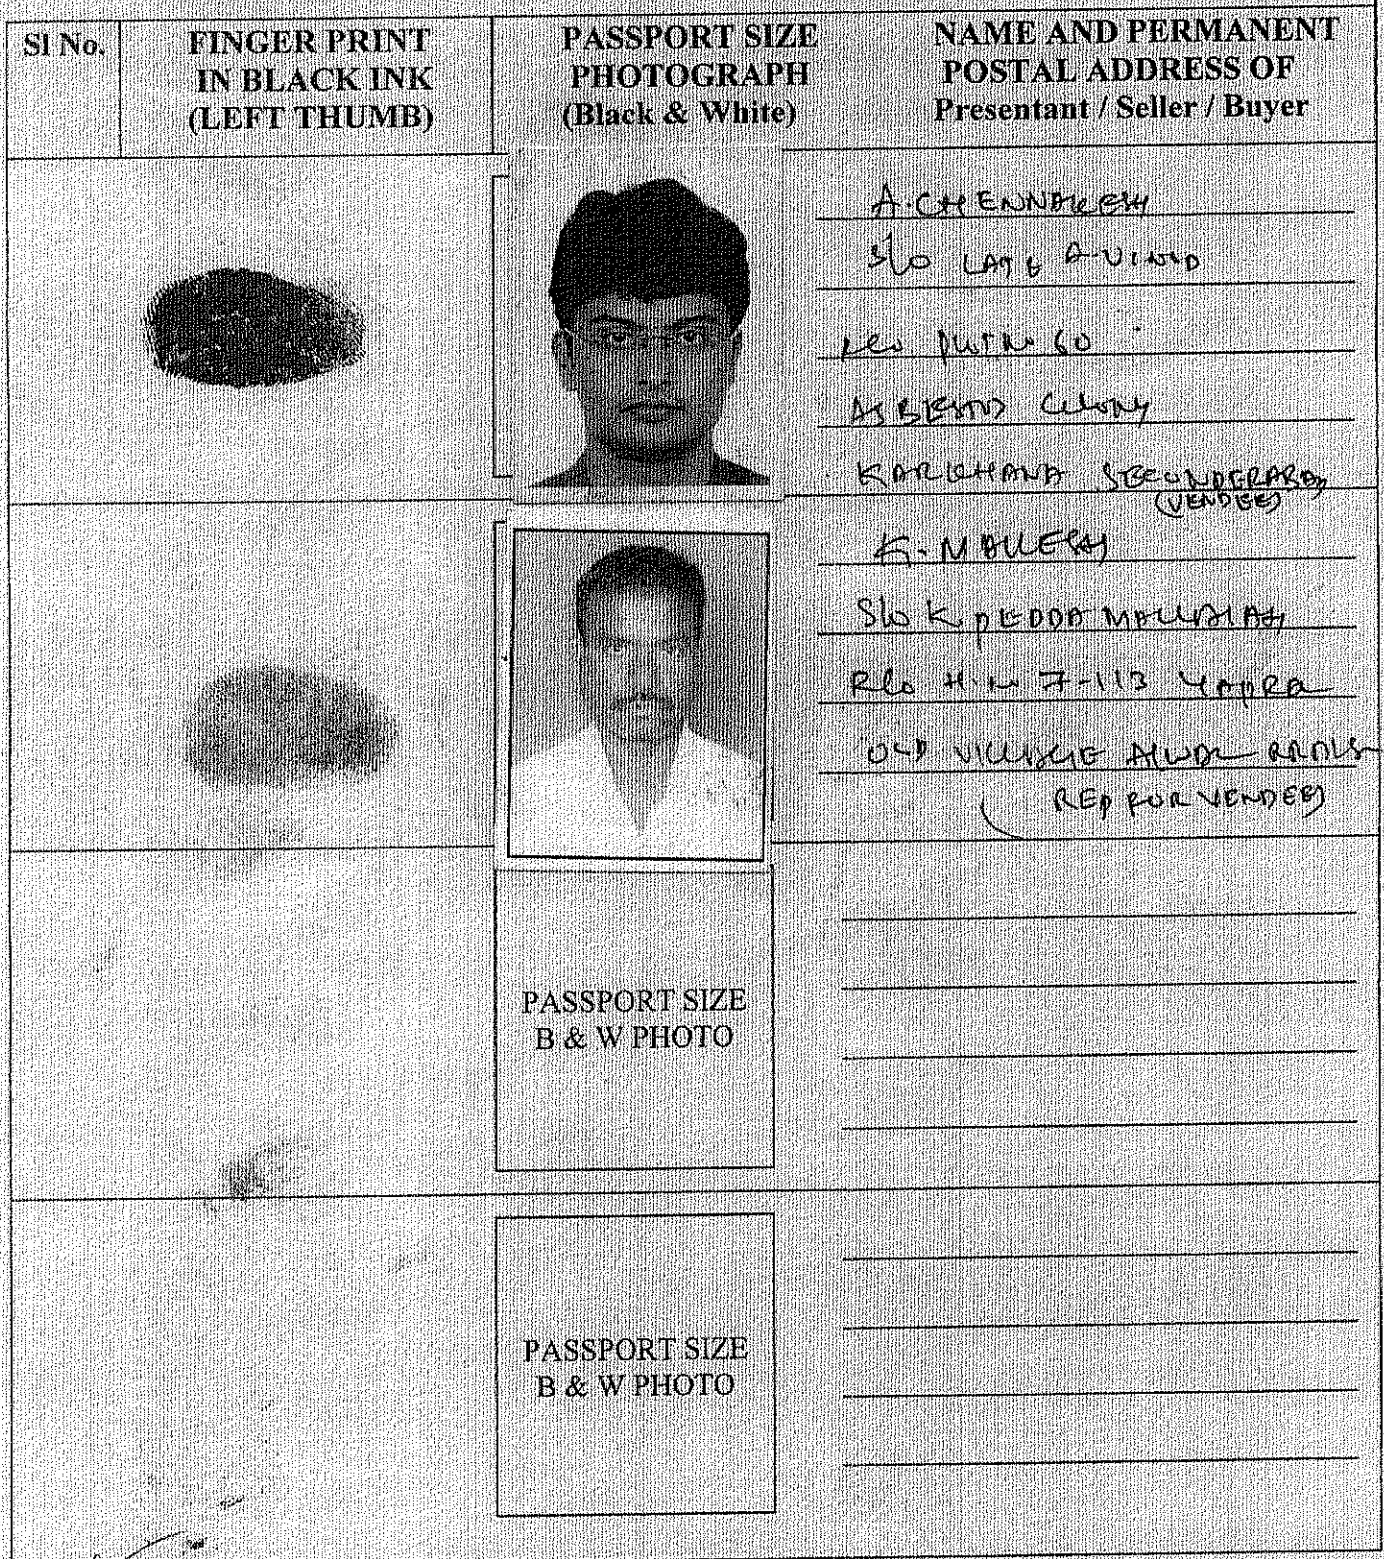 Sl No.
FINGER PRINT
IN BLACK INK
(LEFT THUMB)
PASSPORT SIZE
PHOTOGRAPH
(Black & White)
NAME AND PERMANENT
POSTAL ADDRESS OF
Presentant / Seller / Buyer
A. CHENNAKESH
S/o LATE A. VINOD
60
ASBESTOS Colony
KARKHANA SECUNDERABAD
(VENDEE)
K. MALLESH
S/o K PEDDA MALLAIAH
R/o H. No 7-113 YAPRAL
OLD VILLAGE ALWAL
REP FOR VENDEE
PASSPORT SIZE
B & W PHOTO
PASSPORT SIZE
B & W PHOTO